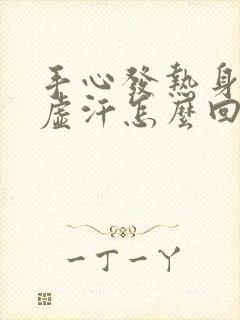 手心發熱身
虛汗怎麼回
一丁一丫